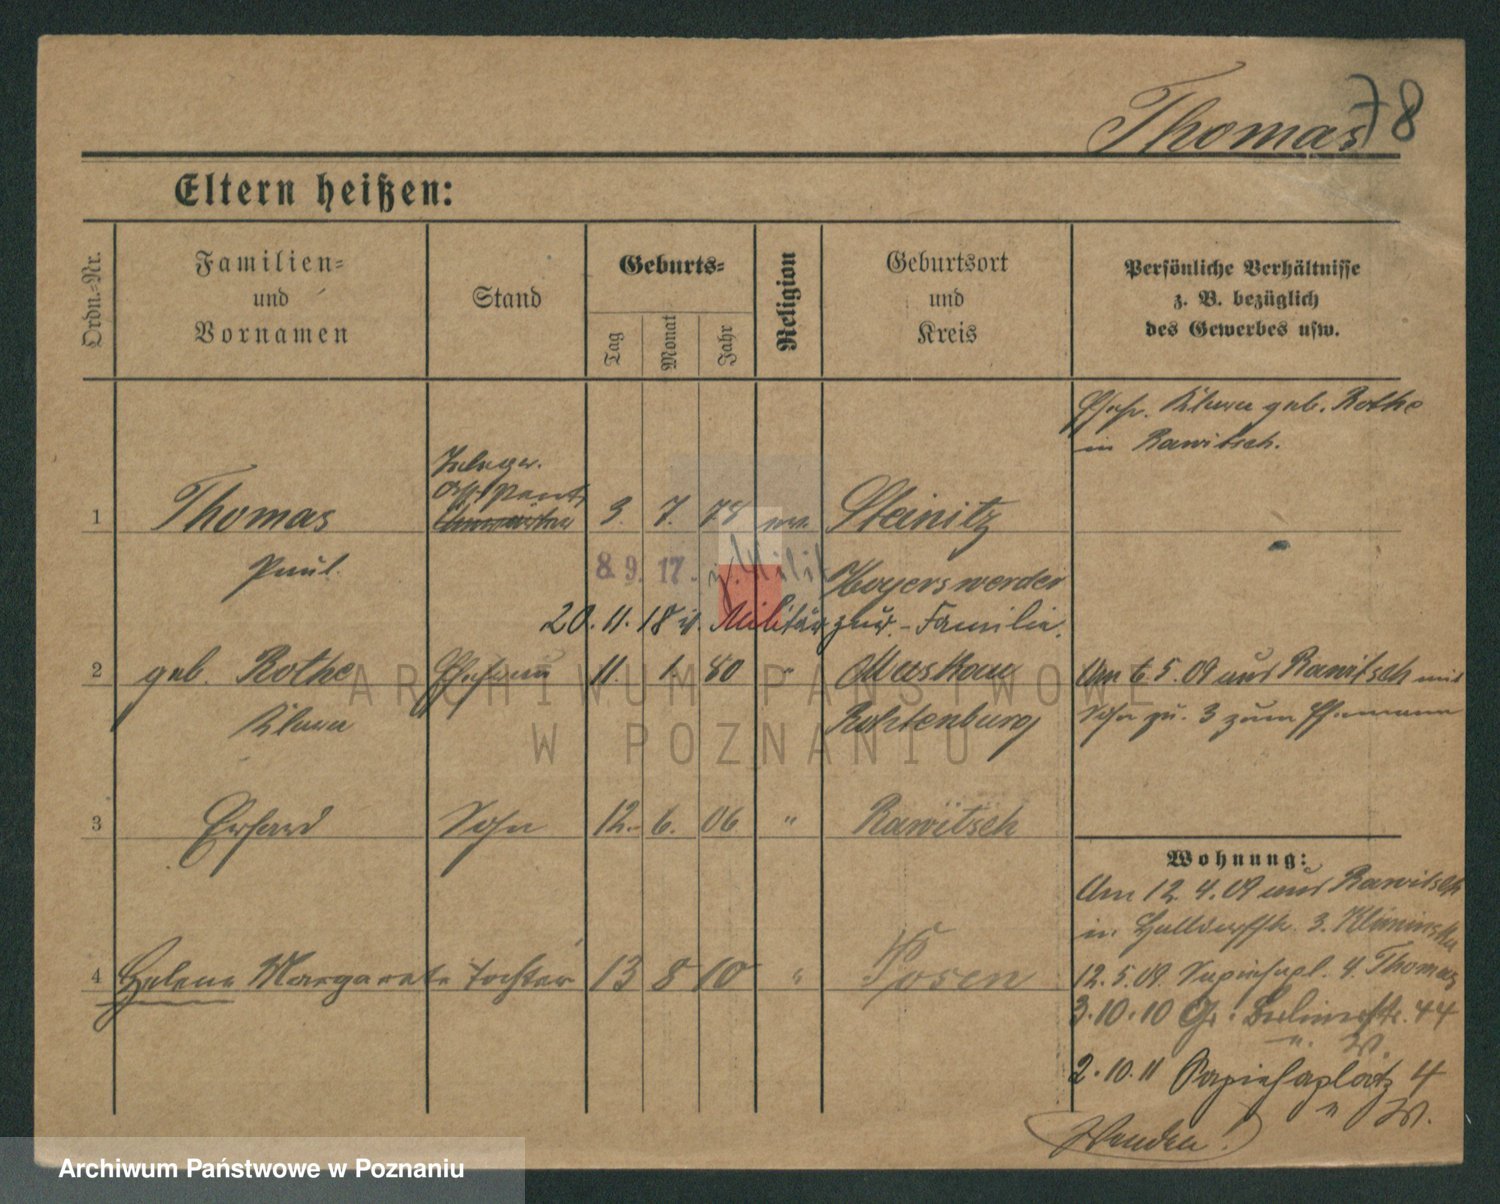 Thomas
78
Eltern heißen:
Ordn.-Nr.
Familien-
und
Vornamen
Stand
Geburts-
Tag
Monat
Jahr
Religion
Geburtsort
und
Kreis
Persönliche Verhältnisse
z. B. bezüglich
des Gewerbes usw.
geb. Rothe
in Rawitsch.
1 Thomas 3. 7. 78 Steinitz
Paul.
8.9.17. z. Milit
Hoyerswerder
20.11.18 Militär zur. Familie.
2 geb. Rothe Ehefrau 11. 1. 80 " Muskau
Am 6.5.09 aus Rawitsch mit
Rohtenburg
Sohn zu. 3 zum Ehemann
3 Erhard Sohn 12. 6. 06 " Rawitsch
Wohnung:
Am 12.4.09 aus Rawitsch
in 3.
4 Helene Margarete Tochter 13 8 10 " Posen
12.5.09. 4. Thomas
3.10.10 Gr. Berlinerstr. 44
" W.
2.10.11 Sapiehaplatz 4
" W.
Wenden!
ARCHIWUM PAŃSTWOWE
W POZNANIU
Archiwum Państwowe w Poznaniu